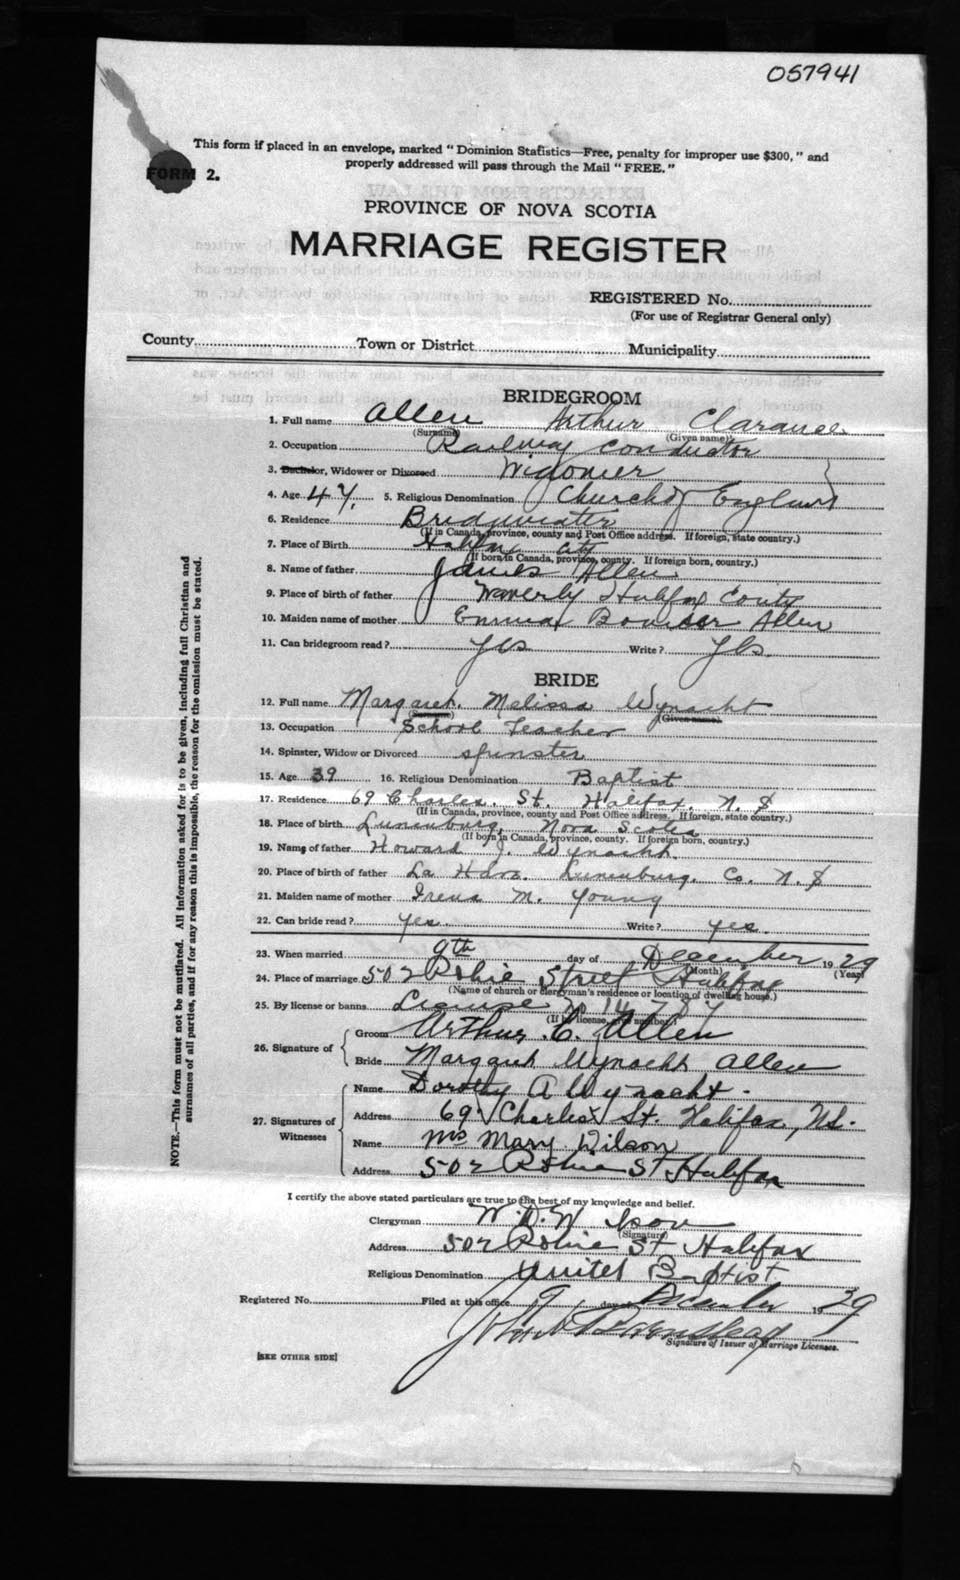 057941
This form if placed in an envelope, marked " Dominion Statistics—Free, penalty for improper use $300, " and
properly addressed will pass through the Mail " FREE. "
FORM 2.
PROVINCE OF NOVA SCOTIA
MARRIAGE REGISTER
REGISTERED No.
(For use of Registrar General only)
County Town or District Municipality
BRIDEGROOM
1. Full name Allen Arthur Clarance
(Surname) (Given name)
2. Occupation Railway Conductor
3. Bachelor, Widower or Divorced Widower
4. Age 47 5. Religious Denomination Church of England
6. Residence Bridgewater
(If in Canada, province, county and Post Office address. If foreign, state country.)
7. Place of Birth Halifax City
(If born in Canada, province, county. If foreign born, country.)
8. Name of father James Allen
9. Place of birth of father Waverly Halifax County
10. Maiden name of mother Emma Allen
11. Can bridegroom read? yes Write? yes.
BRIDE
12. Full name Margaret. Melissa Wynacht
(Surname) (Given name)
13. Occupation School Teacher
14. Spinster, Widow or Divorced spinster
15. Age 39 16. Religious Denomination Baptist
17. Residence 69 Charles. St. Halifax. N. S
(If in Canada, province, county and Post Office address. If foreign, state country.)
18. Place of birth Lunenburg, Nova Scotia
(If born in Canada, province, county. If foreign born, country.)
19. Name of father Howard J. Wynacht.
20. Place of birth of father La Have. Lunenburg. Co. N. S
21. Maiden name of mother Irena M. Young
22. Can bride read? yes Write? yes.
23. When married 9th day of December 1929
(Month) (Year)
24. Place of marriage 502 Robie Street Halifax
(Name of church or clergyman's residence or location of dwelling house.)
25. By license or banns License
(If by license, give number.)
26. Signature of Groom Arthur C. Allen
Bride Margaret Wynacht Allen
27. Signatures of Witnesses
Name Dorothy A Wynacht.
Address 69 Charles St. Halifax, N.S.
Name Mrs Mary Wilson
Address 502 Robie St Halifax
I certify the above stated particulars are true to the best of my knowledge and belief.
Clergyman W. D. Wilson
(Signature)
Address 502 Robie St Halifax
Religious Denomination United Baptist
Registered No. Filed at this office 9 day of December 1929
Signature of Issuer of Marriage Licenses.
[SEE OTHER SIDE]
NOTE.—This form must not be mutilated. All information asked for is to be given, including full Christian and
surnames of all parties, and if for any reason this is impossible, the reason for the omission must be stated.